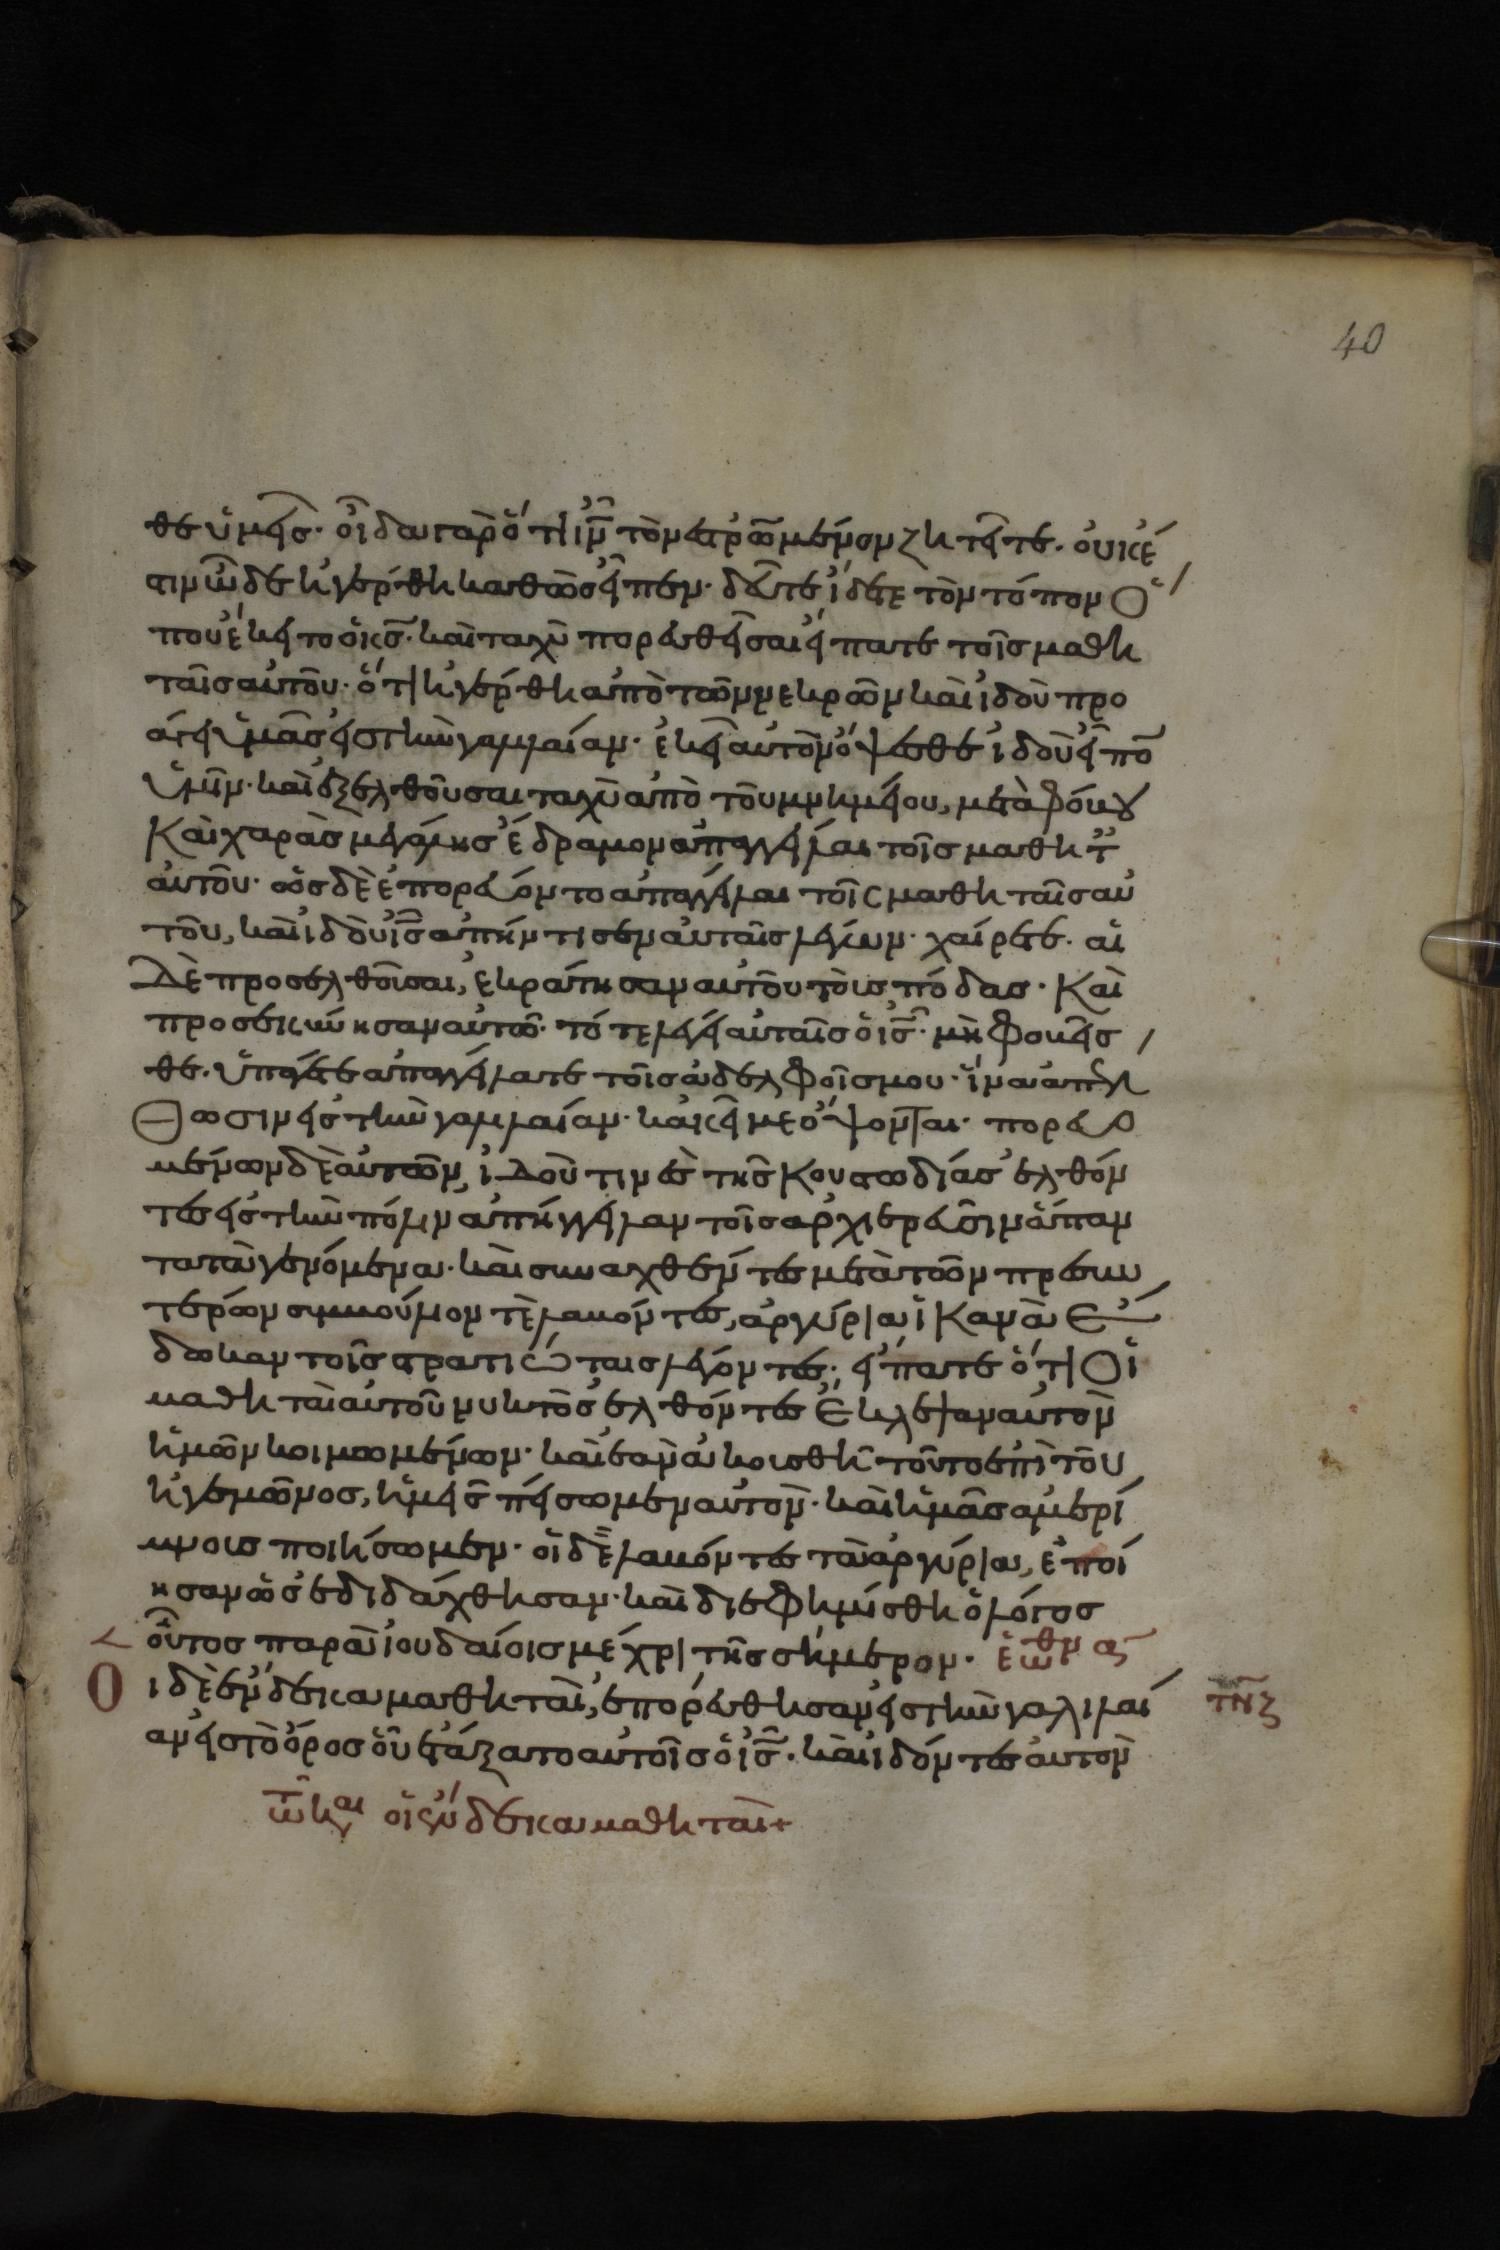 40
θε ὑμεῖς· οἶδα γὰρ ὅτι ιν̅ τὸν ἐστρωμένον ζητεῖτε· οὐκ ἔ
στιν ὧδε ἠγέρθη καθὼς εἶπεν· δεῦτε ἴδετε τὸν τόπον ὅ
που ἔκειτο ὁ κς̅· καὶ ταχὺ πορευθεῖσαι εἴπατε τοῖς μαθη
ταῖς αὐτοῦ· ὅτι ἠγέρθη ἀπὸ τῶν νεκρῶν καὶ ἰδοὺ προ
άγει ὑμᾶς εἰς τὴν γαλιλαίαν· ἐκεῖ αὐτὸν ὄψεσθε ἰδοὺ εἶπον
ὑμῖν· καὶ ἐξελθοῦσαι ταχὺ ἀπὸ τοῦ μνημείου, μετὰ φόβου
Καὶ χαρᾶς μεγάλης ἔδραμον ἀπαγγεῖλαι τοῖς μαθητ
αὐτοῦ· ὡς δὲ ἐπορεύοντο ἀπαγγεῖλαι τοῖς μαθηταῖς αὐ
τοῦ, καὶ ἰδοὺ ις̅ ἀπήντησεν αὐταῖς λέγων· χαίρετε· αἱ
Δὲ προσελθοῦσαι, ἐκράτησαν αὐτοῦ τοὺς πόδας· Καὶ
προσεκύνησαν αὐτῶ· τότε λέγει αὐταῖς ὁ ις̅· μὴ φοβεῖσ
θε· ὑπάγετε ἀπαγγείλατε τοῖς ἀδελφοῖς μου· ἵνα ἀπέλ
Θωσιν εἰς τὴν γαλιλαίαν· κἀκεῖ με ὄψονται· πορευο
μένων δὲ αὐτῶν, ἰΔού τινες τῆς Κουστωδίας ἐλθόν
τες εἰς τὴν πόλιν ἀπήγγειλαν τοῖς ἀρχιερεῦσιν ἅπαν
τα τὰ γενόμενα· καὶ συναχθέντες μετὰ τῶν πρεσβυ
τέρων συμβούλιόν τε λαβόντες, ἀργύρια ἱΚανὰ ἔ
δωκαν τοῖς στρατιώταις λέγοντες· εἴπατε ὅτι Οἱ
μαθηταὶ αὐτοῦ νυκτὸς ἐλθόντες Ἔκλεψαν αὐτὸν
ἡμῶν κοιμωμένων· καὶ ἐὰν ἀκουσθῆ τοῦτο ἐπὶ τοῦ
ἡγεμῶνος, ἡμεῖς πείσωμεν αὐτὸν· καὶ ἡμᾶς ἀμερί
μνους ποιήσωμεν· οἱ δὲ λαβόντες τὰ ἀργύρια, ἐποί
ησαν ὡς ἐδιδάχθησαν· καὶ διεφημίσθη ὁ λόγος
οὗτος παρὰ ἰουδαίοις μέχρι τῆς σήμερον·
Οἱ δὲ ἕνδεκα μαθηταὶ, ἐπορεύθησαν εἰς τὴν γαλιλαί
αν εἰς τὸ ὄρος οὗ ἐτάξατο αὐτοῖς ὁ ις̅· καὶ ἰδόντες αὐτὸν
τῶ κ̅α̅ι̅ οἱ ἕνδεκα μαθηταὶ+